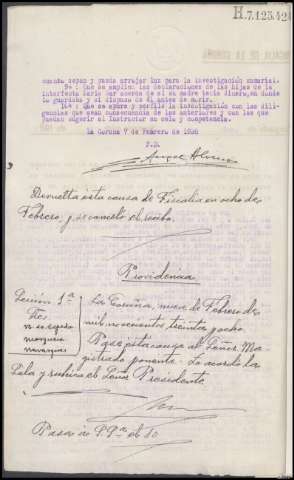 H.7.123.42
cuanta sepan y pueda arrojar luz para la investigación sumarial.
9º : Que se amplíen las declaraciones de las hijas de la
interfecta María Mar acerca de si su madre tenía dinero, en donde
lo guardaba y si dispuso de él antes de morir.
10º : Que se apure y perfile la investigación con las dili-
gencias que sean consecuencia de las anteriores y con las que
puedan sugerir al Instructor su celo y competencia.
La Coruña 7 de Febrero de 1938
P.D.
Angel
Devuelta esta causa de Fiscalía en ocho de
Febrero, y se canceló el recibo.
Providencia
Sección 1ª
La Coruña, nueve de Febrero de
mil novecientos treinta y ocho.
Pase esta causa al Señor Ma-
gistrado ponente. Lo acordó la
Sala y rubrica el Señor Presidente.
Pasa